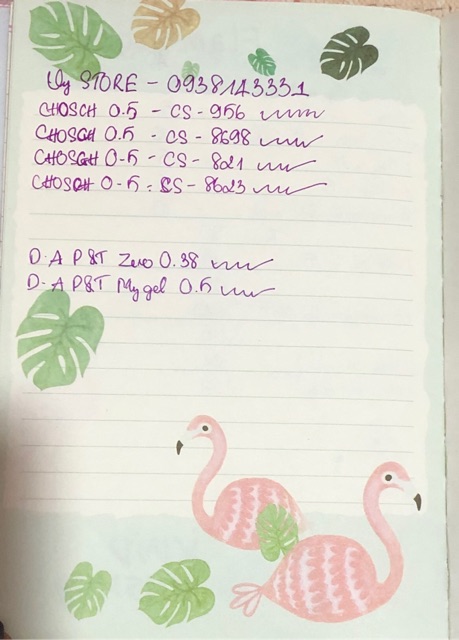 Uy STORE - 0938143331
CHOSCH 0.5 - CS - 956
CHOSCH 0.5 - CS - 8698
CHOSCH 0-5 - CS - 821
CHOSCH 0-5 - CS - 8623
D.A P&T Zero 0.38
D-A P&T Mygel 0.5